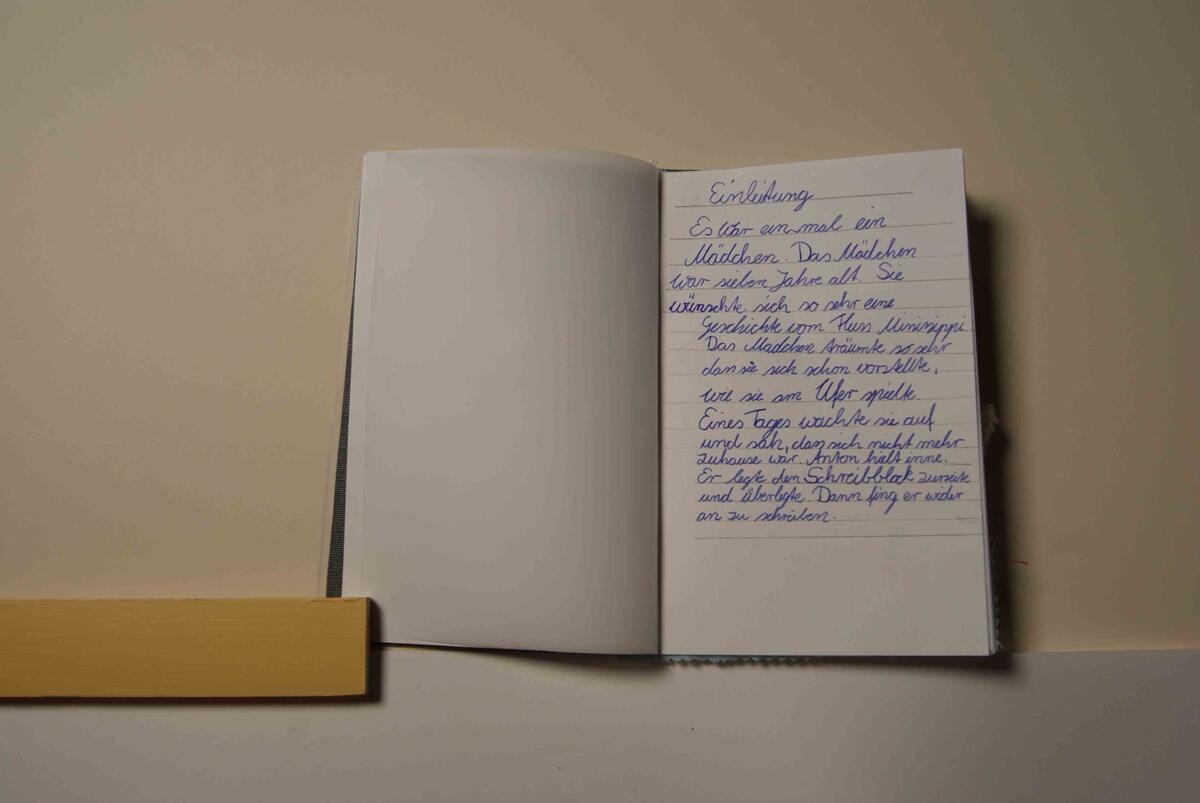 Einleitung
Es war ein mal ein
Mädchen. Das Mädchen
war sieben Jahre alt. Sie
wünschte sich so sehr eine
Geschichte vom Fluss Minisippi.
Das Mädchen träumte so sehr
dass sie sich schon vorstellte,
wie sie am Ufer spielte.
Eines Tages wachte sie auf
und sah, dass sich nicht mehr
zuhause war. Anton hielt inne.
Er legte den Schreibblock zurseite
und überlegte. Dann fing er wider
an zu schreiben.